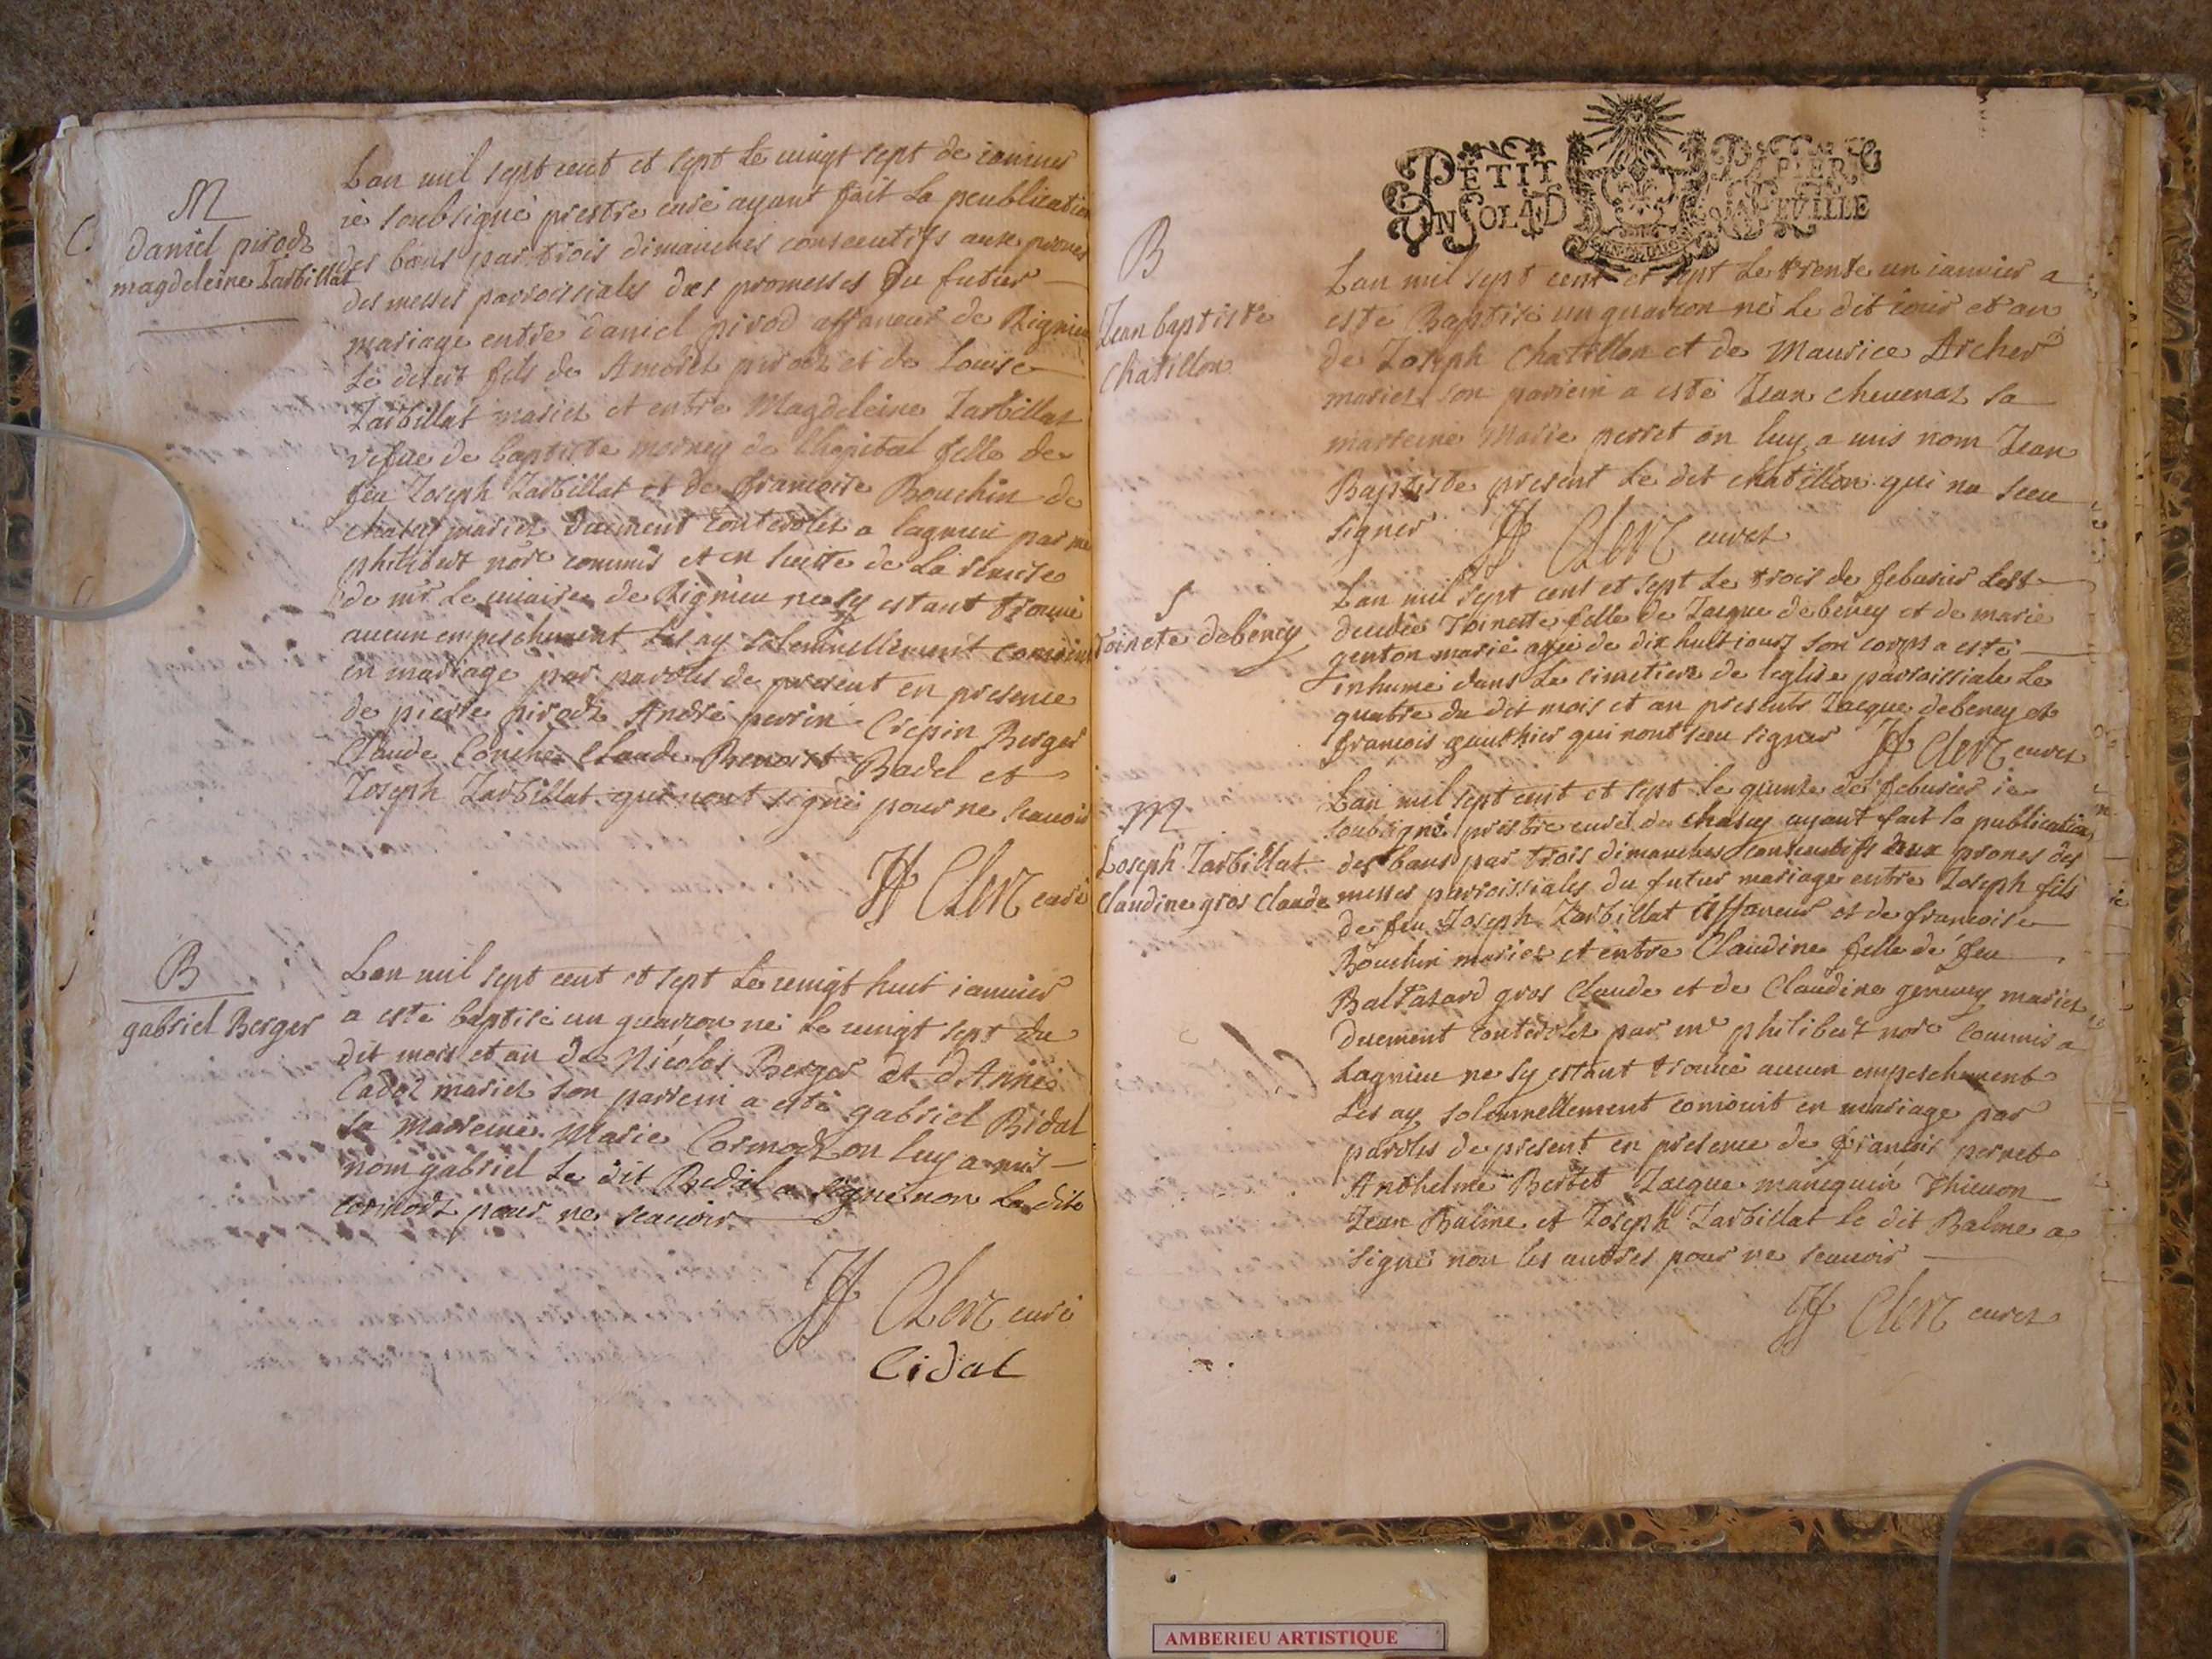 M
daniel pirodz
magdeleine Tarbillat
Lan mil sept cent et sept le uingt sept de ianuier
ie soubsigné prestre curé ayant fait la peublication
des bans par trois dimanches consecutifs aux prones
des messes parroissiales des promesses du futur
mariage entre daniel pirod affaneur de Rignieu
le desert fils de Amored pirodz et de Louise
Tarbillat mariez et entre Magdeleine Tarbillat
vefue de baptiste morney de lhopital fille de
feu Joseph Tarbillat et de francoise Bouchin de
chasey mariez duement controlez a lagnieu par me
philibert nore commis et en suitte de la remise
de mr le uicaire de Rignieu ne sy estant trouué
aucun empeschement les ay solemnellement conioint
en mariage par paroles de present en presence
de pierre pirodz André perrin Crepin Berger
Claude Conche Claude Benoist Badel et
Joseph Tarbillat qui nont signé pour ne scauoir
Clerc curé
B
gabriel Berger
Lan mil sept cent et sept le uingt huit ianuier
a esté baptisé un guarcon né le uingt sept du
dit mois et an de Nicolas Berger et dAnne
Cadoz mariez son parrein a esté gabriel Bidal
sa marreine Marie Cormodz on luy a mis
nom gabriel le dit Bidal a signé non la dite
cormodz pour ne scauoir
Clerc curé
Bidal
PETIT PAPIER
UN SOL 4 D LA FEUILLE
B
Jean baptiste
Chatillon
Lan mil sept cent et sept le trente un ianuier a
esté Baptisé un guarcon né le dit iour et an
de Joseph Chatillon et de Maurice Archer
mariez son parrein a esté Jean cheuenaz sa
marreine Marie perret on luy a mis nom Jean
Baptiste present le dit chatillon qui na sceu
signer Clerc curez
S
Toinete debeney
Lan mil sept cent et sept le trois de feburier est
decedée Toinette fille de Jacque debeney et de marie
genton marié agée de dix huit iours son corps a esté
inhumé dans le cimetiere de leglise parroissiale le
quatre du dit mois et an presents Jacque debeney et
francois gauthier qui nont sceu signer Clerc curez
M
Joseph Tarbillat
Claudine gros Claude
Lan mil sept cent et sept le quinze de feburier ie
soubsigné prestre curé de chasey ayant fait la publication
des bans par trois dimanches consecutifs aux prones des
messes parroissiales du futur mariage entre Joseph fils
de feu Joseph Tarbillat affaneur et de francoise
Bouchin mariez et entre Claudine fille de feu
Baltazard gros Claude et de Claudine geneuey mariez
duement controlez par me philibert nore commis a
Lagnieu ne sy estant trouué aucun empeschement
les ay solemnellement conioint en mariage par
paroles de present en presence de francois perret
Anthelme Bertet Jacque manequin Thieuon
Jean Balme et Joseph Tarbillat le dit Balme a
signé non les autres pour ne scauoir
Clerc curez
AMBERIEU ARTISTIQUE